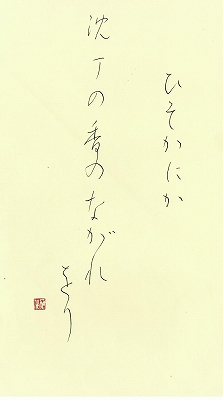 ひそかにか
沈丁の香の
ながれ
をり